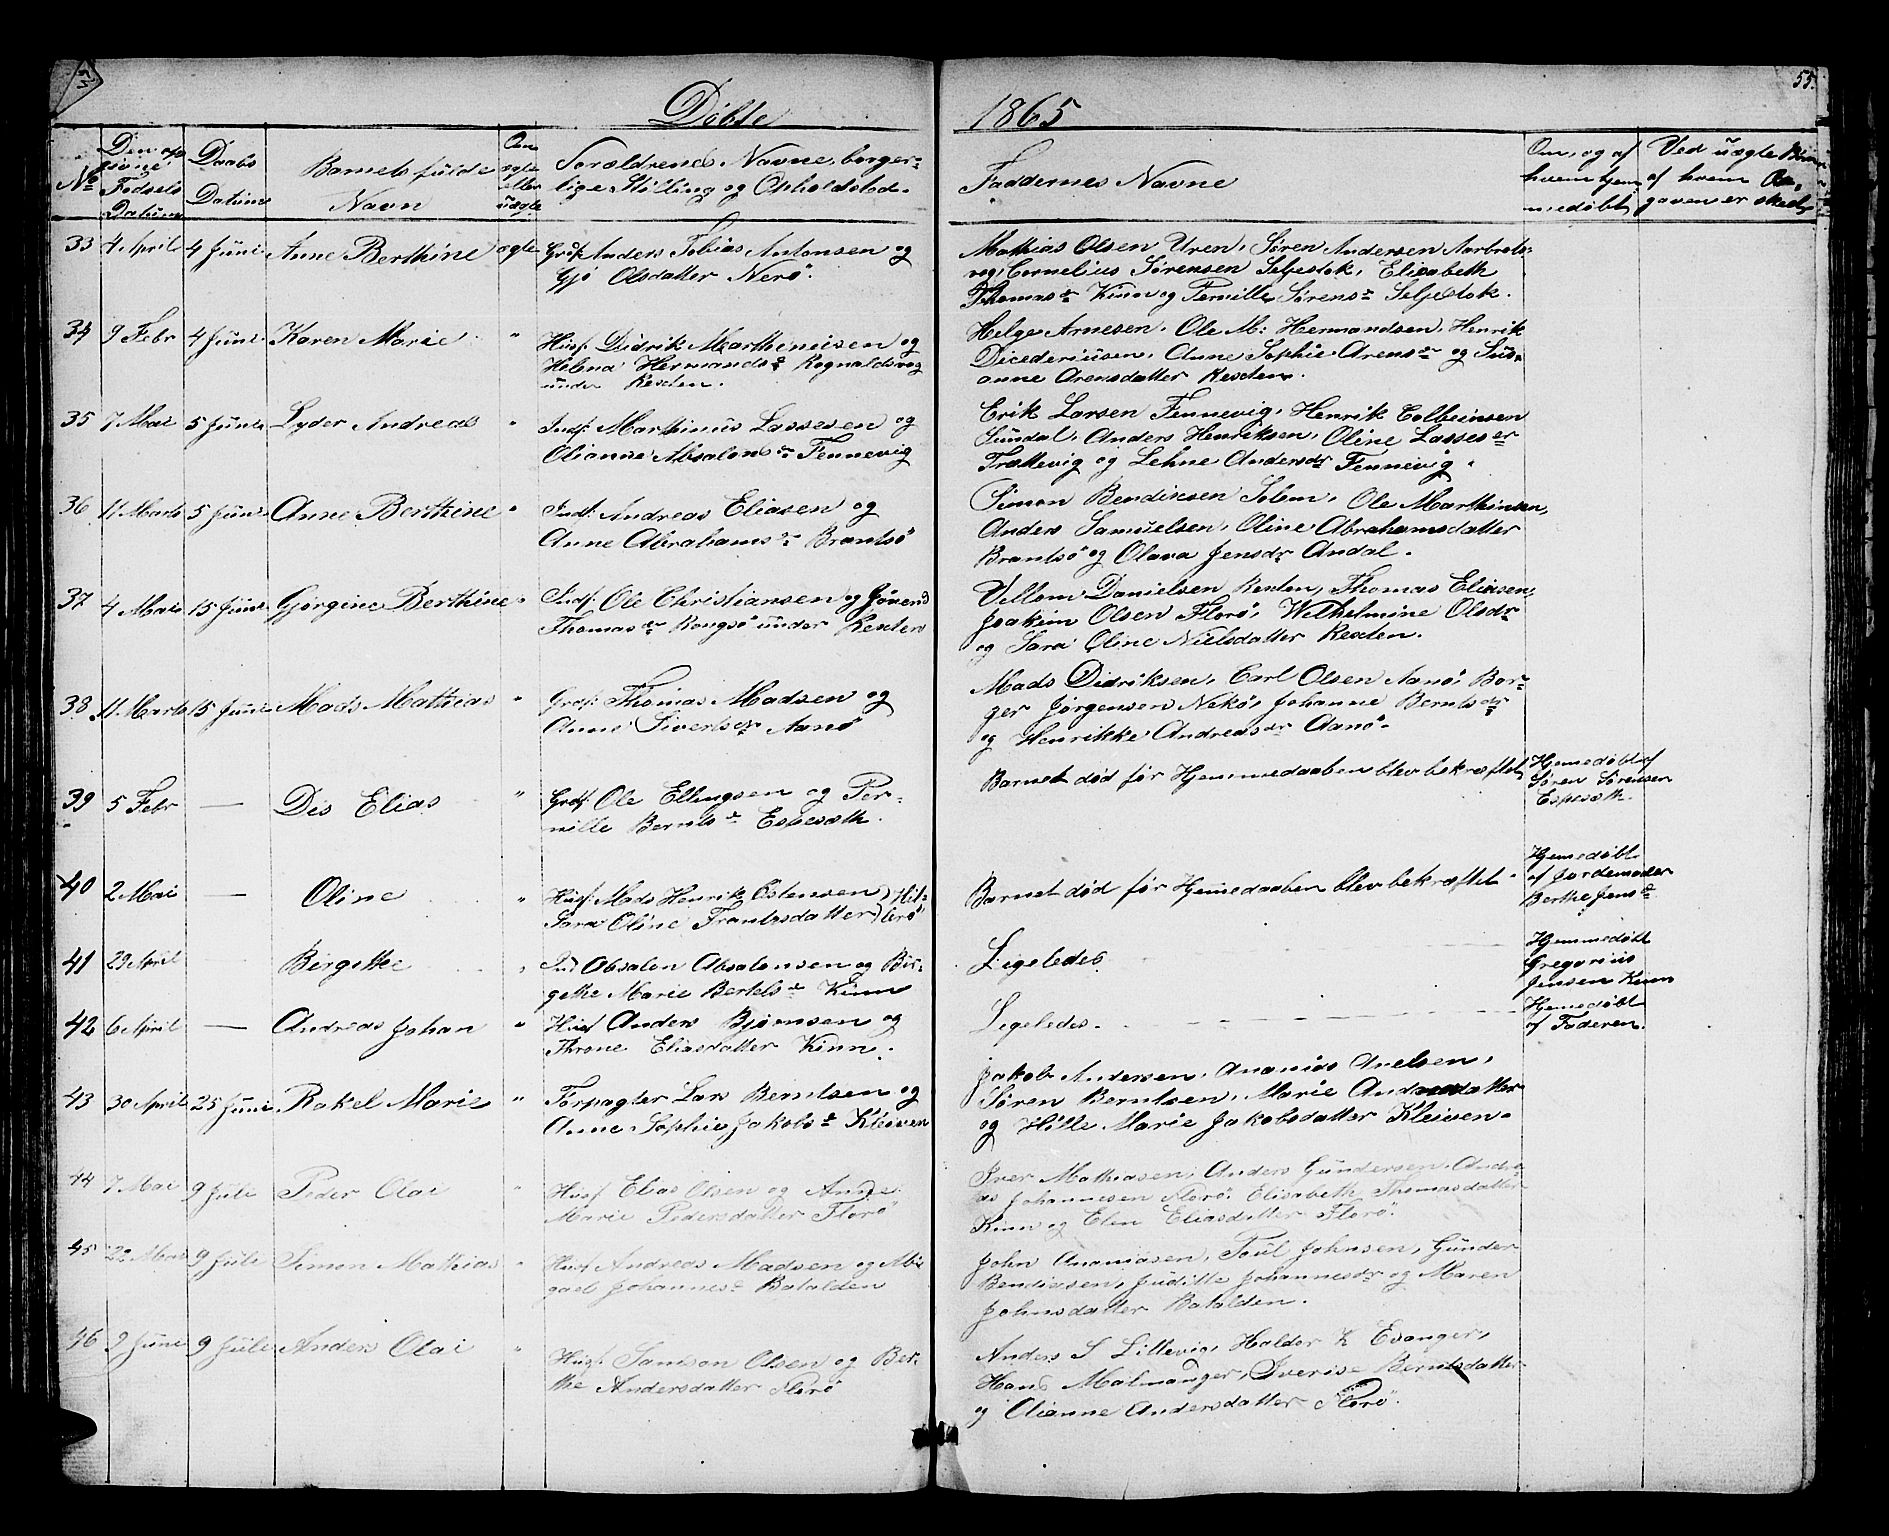 55.
Døbte
1865
No
Den opgivne Fødsels Datum
Daabs Datum
Barnets fulde Navn
Om ægte eller uægte
Forældrenes Navne, borgerlige Stilling og Opholdssted.
Faddernes Navne
Om, og af hvem hjemmedøbt
Ved uægte Børn af hvem er skeet
33 4 April 4 Juni Anne Berthine ægte Grdf. Anders Tobias Antonsen og
Gjø Olsdatter Nerø.
Mathias Olsen Uren, Søren Andersen Aarbrots-
vog, Cornelius Sørensen Seljestok, Elisabeth
Thomasdr Kinn og Pernille Sørensdr Seljestok.
34 9 Febr 4 Juni Karen Marie " Husf. Didrik Martheneisen og
Helena Hermandsdr Rognaldsvog
under Rexten.
Helge Arnesen, Ole M: Hermandsen, Henrik
Anne Sophie Arensdr og Sus-
anne Arensdatter Rexten.
35 7 Mai 5 Juni Lyder Andreas " Indf. Marthinus Lassesen og
Olianne Absalonsdr Fennevig
Erik Larsen Fennevig, Henrik Colbeinsen
Sundal, Anders Henriksen, Oline Lassesdr
Trættevig og Lehne Andersdr Fennevig.
36 11 Marts 5 Juni Anne Berthine " Indf: Andreas Eliasen og
Anne Abrahamsdr Brantsø
Simon Bendixsen Solem, Ole Marthinsen,
Anders Samuelsen, Oline Abrahamsdatter
Brantsø og Olava Jensdr Andal.
37 4 Mars 15 Juni Gjørgine Berthine " Indf: Ole Christiansen og
Thomasdr Rongsø under Rexten
Vellom Danielsen Rexten, Thomas Eliasen,
Joakim Olsen Florø, Wilhelmine Olsdr
og Sara Oline Nielsdatter Rexten.
38 11 Marts 15 Juni Mads Mathias " Grdf: Thomas Madsen og
Anne Sivertsdr Aanø
Mads Didriksen, Carl Olsen Aanø, Bør-
ger Jørgensen Nekø, Johanne Berntsdr
og Henrikke Andreasdr Aanø.
39 5 Febr — Dis Elias " Grdf. Ole Ellingsen og Per-
nille Berntsdr Espesæth.
Barnet død før Hjemmedaaben blev bekræftet
Hjemmedøbt af
Søren Sørensen
Espesæth.
40 2 Mai — Oline " Husf. Mads Henrik Estensen) Hit-
Sara Oline Frantsdatter) terø
Barnet død før Hjemmedaaben blev bekræftet
Hjemedøbt
af Jordemoder
Berthe Jensdr
41 29 April — Birgitte " Ind Absalon Absalonsen og Bir-
gethe Marie Bertelsdr Kinn
Ligeledes
Hjemmedøbt
Gregorius
Jensen Kinn
42 6 April — Andreas Johan " Husf Anders Bjørnsen og
Throne Eliasdatter Kinn.
Ligeledes.
Hjemedøbt
af Faderen.
43 30 April 25 Juni Rakel Marie " Forpagter Lars Berntsen og
Anne Sophie Jakobsdr Kleiven
Jakob Andersen, Ananias Axelsen,
Søren Berntsen, Marie Andreasdatter
og Hille Marie Jakobsdatter Kleiven.
44 7 Mai 9 Juli Peder Olai " Husf Elias Olsen og Anne
Marie Pedersdatter Florø
Iver Mathiasen, Anders Gundersen, Andre-
as Johannesen Florø, Elisabeth Thomasdatter
Kinn og Elen Eliasdatter Florø.
45 22 Mai 9 Juli Simon Mathias " Husf Andreas Madsen og Abi
gael Johannesdr Batalden
John Ananiasen, Poul Johnsen, Gunder
Bendixsen, Juditte Johannesdr og Maren
Johnsdatter Batalden.
46 9 Juni 9 Juli Anders Olai " Husf. Samson Olsen og Ber-
the Andersdatter Florø
Anders S Lillevig, Haldor K Evanger,
Hans Malmanger, Iverise Berntsdatter
og Olianne Andersdatter Florø.